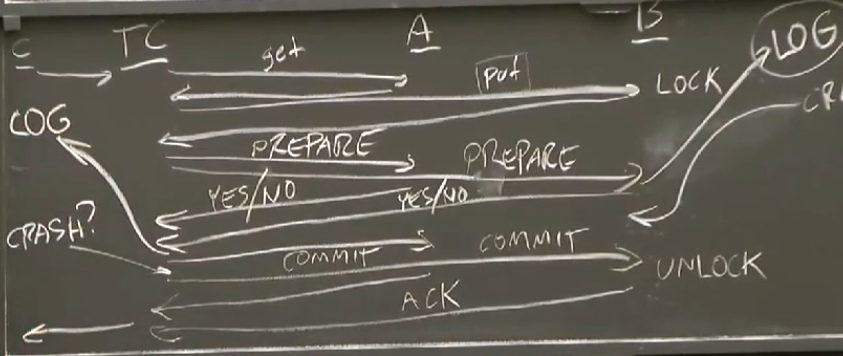 C TC A B LOG
get
put LOCK
LOG
PREPARE PREPARE
YES/NO YES/NO
CRASH?
COMMIT COMMIT
UNLOCK
ACK